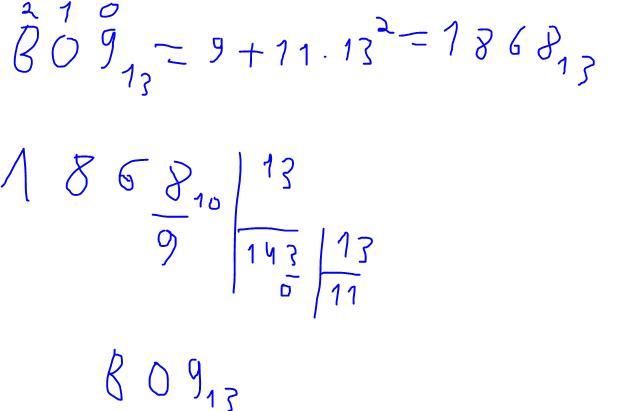 2 1 0
B 0 9₁₃ = 9 + 11 · 13² = 1868₁₃
1868₁₀ | 13
9 | 143 | 13
0 | 11
B 0 9₁₃